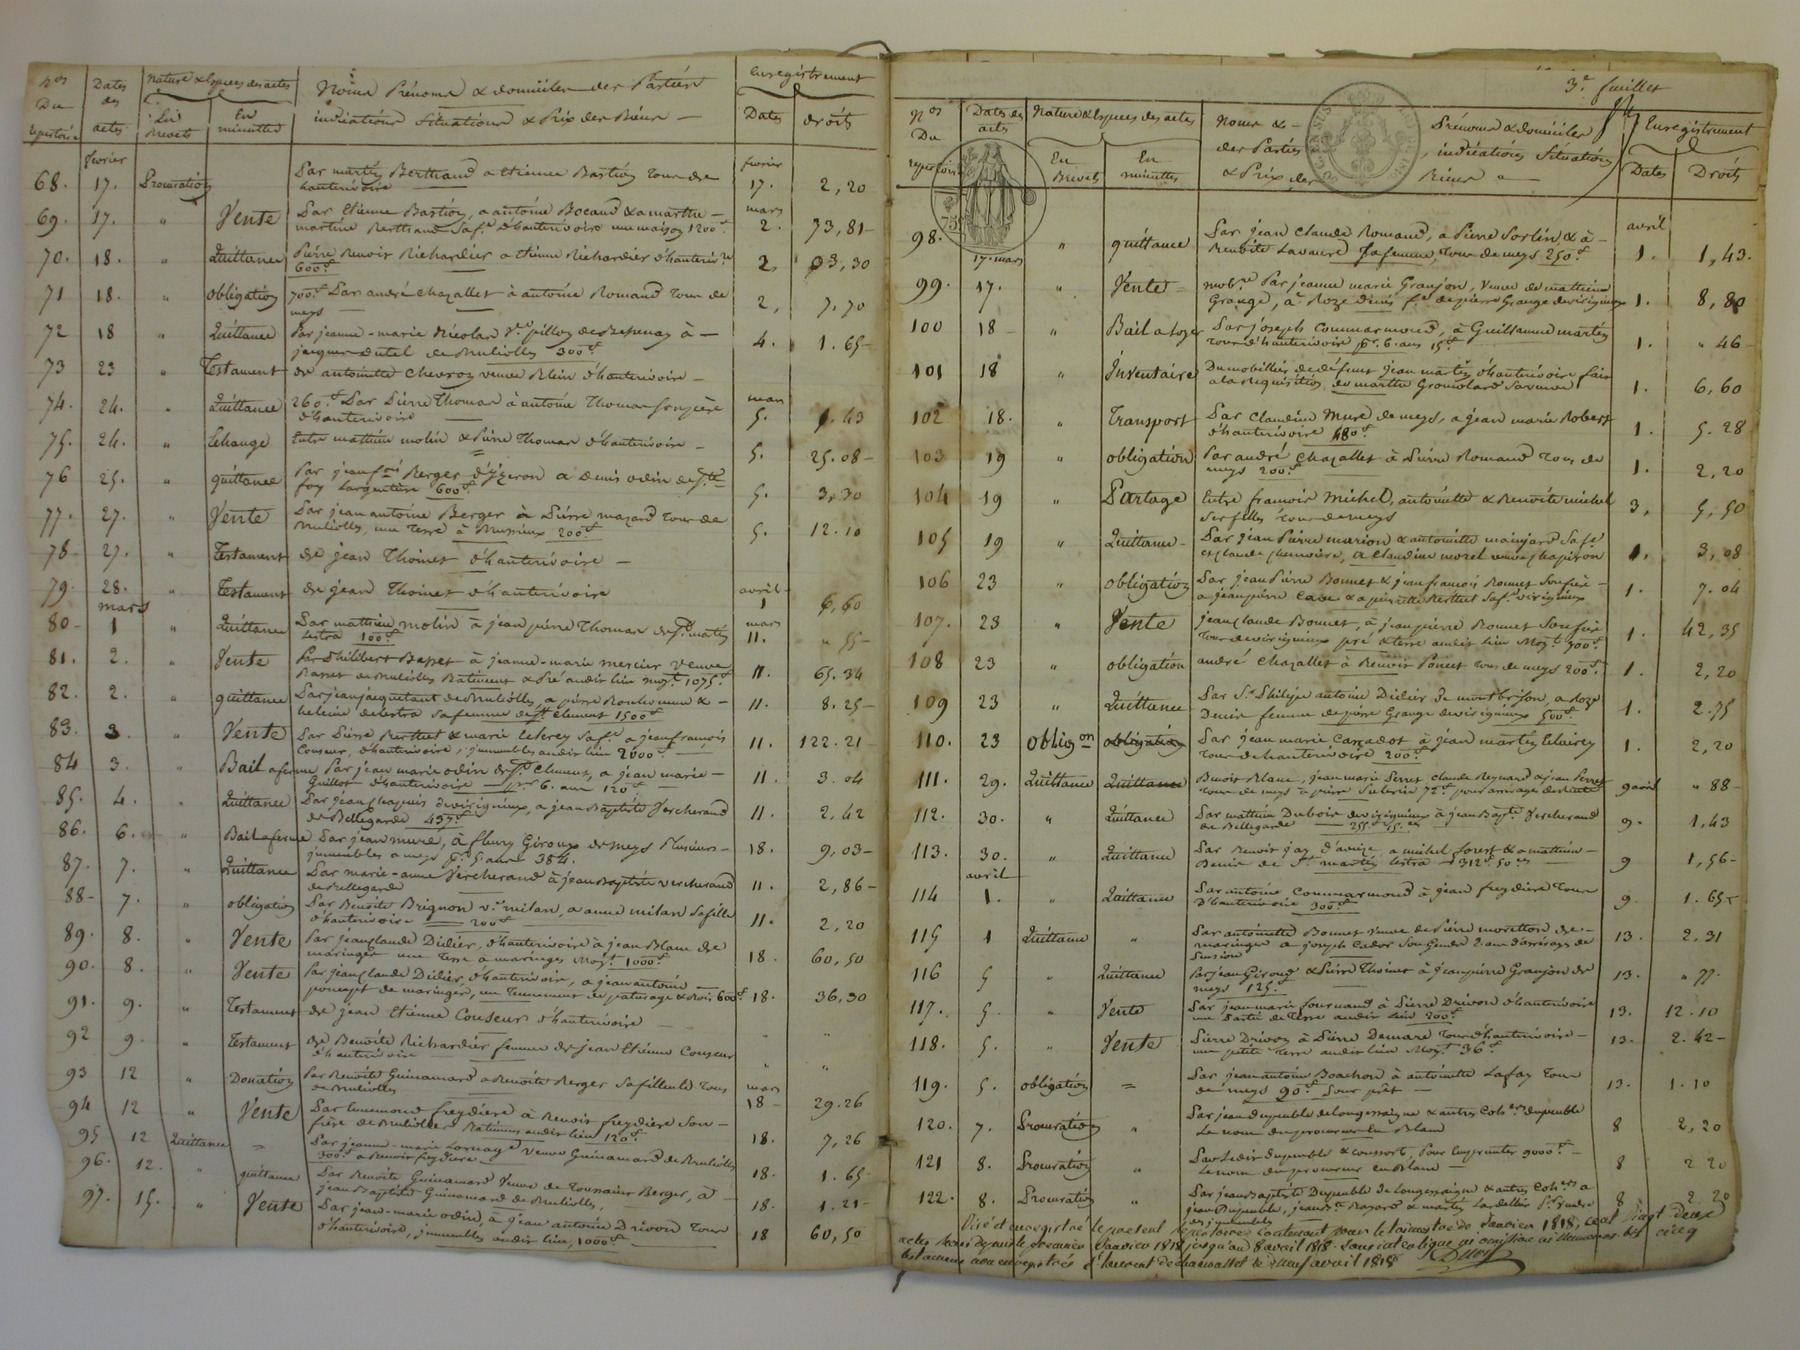 Nos Du Repertoire
Dates des actes
Nature & Especes des actes
En Brevets
En minuttes
Noms Prénoms & domiciles des Parties
indications Situations & Prix des Biens
Enregistrement
Dates
droits
fevrier
fevrier
68. 17. Procuration Par martin Berthaud a etienne Bastion tous de
hauterivoire 17. 2,20
mars
69. 17. " Vente Par Etienne Bastion, a antoine Bocaud & a marthe
martine Berthaud Sa fe. d'hauterivoire une maison 1200 f 2. 73,81
70. 18. " Quittance Pierre Benoit Richardier a etienne Richardier d'hauterivre
600 f 2, 3,30
71 18. " obligation 700 f Par andré chazallet à antoine Romand tous de
meys 2, 7,70
72 18 " Quittance Par jeanne-marie Nicolas ve pillon de Bessenay à
jacques dutel de Brulioles 300 f 4. 1.65
73 23 " Testament de antoinette chevron veuve Blein d'hauterivoire
mars
74. 24. " Quittance 260 f Par Pierre Thomas à antoine Thomas son frère
d'hauterivoire 5. 1.43
75. 24. " Echange Entre mathieu molin & Pierre Thomas d'hauterivoire 5. 25.08
76 25. " quittance Par jean fois Berger d'yzeron a denis odin de Ste
foy Largentiere 600 f 5. 3,30
77. 27. " Vente Par jean antoine Berger à Pierre mazard tous de
Brulioles, une Terre à 200 f 5. 12.10
78 27. " Testament de jean Thoinet d'hauterivoire
79. 28. " Testament de jean Thoinet d'hauterivoire avril 1 6,60
mars
mars
80 1 " Quittance Par mathieu molin à jean pierre Thomas de St. martin
lestra 100 f 11. " 55
81. 2. " Vente Par Philibert Basset à jeanne-marie mercier veuve
Basset de Brulioles Batiment & Pré audit lieu moyt. 1075 f 11. 65.34
82. 2. " quittance Par jean jacquetant de Brulioles, a pierre Bonhomme &
helene delestra sa femme de St. Clement 1500 f 11. 8.25
83. 3. " Vente Par Pierre Berthet & marie Sa fe. a jean françois
Couseur, d'hauterivoire, immeubles audit lieu 2000 f 11. 122.21
84 3. " Bail a ferme Par jean marie odin de St. Clement, a jean marie
Guillot d'hauterivoire pr 6. ans 120 f 11. 3.04
85. 4. " Quittance Par jean chapuis de virigneux, a jean Baptiste Vercherand
de Bellegarde 437 f 11. 2,42
86. 6. " Bail a ferme Par jean mure, à fleury Giroux de meys Plusieurs
immeubles a meys pr. 5 ans 384. 18. 9,03
87. 7. " Quittance Par marie-anne Vercherand à jean Baptiste vercherand
de Bellegarde 11. 2,86
88 7. " obligation Par Benoite Brignon ve milan, a anne milan sa fille
d'hauterivoire 200 f 11. 2,20
89. 8. " Vente Par jean claude Didier, d'hauterivoire à jean Blanc de
maringes une Terre a maringes moyt. 1000 f 18. 60,50
90. 8. " Vente Par jean claude Didier, d'hauterivoire, a jean antoine
poncept de maringes, un Tennement de paturage & bois 600 f 18. 36,30
91. 9. " Testament de jean Etienne Couseur d'hauterivoire
92 9. " Testament de Benoite Richardier femme de jean Etienne Couseur
d'hauterivoire " "
93 12 " Donation Par Benoite Guinamard a Benoite Berger sa filleule tous
de Brulioles mars 18 29.26
94 12 " Vente Par freydiere à Benoit freydiere son
frère de Brulioles Batiments audit lieu 120 f 18. 7,26
95 12 Quittance = Par jeanne-marie veuve Guinamard de Brulioles
300 f a Benoit freydiere 18. 1.65
96. 12. " quittance Par Benoite Guinamard Veuve de Toussaint Berger, a
jean Baptiste Guinamard de Brulioles, 18. 1.21
97. 15. " Vente Par jean-marie odin, à jean antoine Drivon tous
d'hauterivoire, immeubles audit lieu, 1000 f 18 60,50
3e. feuillet
Nos Du Repertoire
Dates des actes
Nature & Especes des actes
En Brevets
En minuttes
Noms & Prénoms & domiciles
des Parties, indications Situations
& Prix des Biens
Enregistrement
Dates
Droits
75 c
avril
98. 17. mars " quittance Par jean Claude Romand, a Pierre Sorlin & à
Benoite Lavaure sa femme, tous de meys 250 f 1. 1,43.
99. 17. " Vente mobre. Par jeanne marie Granjon, Veuve de mathieu
Grange, à Roze Denis fe de pierre Grange de virigneux 1. 8,80
100 18 " Bail a loyer Par joseph Commarmond, à Guillaume martin
tous d'hauterivoire pr. 6. ans 15 f 1. " 46
101 18 " Inventaire Du mobillier de défunt jean martin d'hauterivoire fait
a la requisition de marthe sa veuve 1. 6,60
102 18. " Transport Par Claudine Mure de meys, a jean marie Robert
d'hauterivoire 480 f 1. 5.28
103 19 " obligation Par andré Chazallet à Pierre Romand tous de
meys 200 f 1. 2,20
104 19 " Partage Entre francois Michel, antoinette & Benoite michel
ses filles tous de meys 3, 5,50
105 19 " Quittance Par jean Pierre marion & antoinette maujard Sa fe
a Claudine morel veuve chapiron 1. 3,08
106 23 " obligation Par jean Pierre Bonnet & jean francois Bonnet son frère
a jean pierre Cave & a pierrette Berthet Sa fe. virigneux 1. 7.04
107. 23 " Vente jean claude Bonnet, à jean pierre Bonnet son frère
tous de virigneux pré & terre audit lieu moyt. 700 f 1. 42,35
108 23 " obligation andré Chazallet à Benoit Poncet tous de meys 200 f 1. 2,20
109 23 " Quittance Par Sr. Philippe antoine Didier de montbrison, a Roze
Denis femme de pierre Grange de virigneux 500 f 1. 2.75
110. 23 obligon obligation Par jean marie Cassadot à jean martin
tous de hauterivoire 200 f 1. 2,20
111. 29. Quittance Quittance Benoit Blanc, jean marie Perret Claude Reynard & jean Perret
tous de meys a pierre 72 f pour arrerages de 9 avril " 88
112. 30. " Quittance Par mathieu Dubois de virigneux à jean Bapte. Vercherand
de Bellegarde 255 f 15. ces 9. 1,43
113. 30. " Quittance Par Benoit jay d'aveize a michel forest & a mathieu
Benier de St. martin lestra 312 f 50 ces 9 1,56
avril
114 1. " Quittance Par antoine Commarmond à jean freydiere tous
d'hauterivoire 300 f 9. 1.65
115 1 Quittance " Par antoinette Bonnet veuve de Pierre moretton de
maringes a joseph Cador son Gendre 2 ans d'arrerages de
Pension 13. 2,31
116 5 " Quittance Par jean Giroud & Pierre Thoinet à jean pierre Granjon de
meys 125 f 13. " 77.
117. 5. " Vente Par jean marie fournand à Pierre Drivon d'hauterivoire
une Partie de Terre audit lieu 200 f 13. 12.10
118. 5. " Vente Pierre Drivon à Pierre Demare tous d'hauterivoire
une petite terre audit lieu Moyt. 36 f 13. 2.42
119. 5. obligation = Par jean antoine Boachon à antoinette Lafay tous
de meys 90 f Pour prêt 13. 1.10
120. 7. Procuration " Par jean dupeuble de Longessaigne & autres Cohers dupeuble
Le nom du procureur En Blanc 8 2,20
121 8. Procuration " Par Ledit dupeuble & consorts, Pour Emprunter 9000 f
Le nom du procureur en Blanc 8 2 20
122. 8. Procuration " Par jean Baptiste Dupeuble de Longessaigne & autres Cohers a
jean Dupeuble, jean Bte. & martin pr. Vendre
des immeubles 8 2 20
Visé et enregistré le present repertoire contenant pour le trimestre de Janvier 1818, cent Vingt deux
actes reçus depuis le premier Janvier 1818 jusqu'au 8 avril 1818 sans intercaligne ni omission ni numeros bis cinq
testaments non enregistrés St. laurent de chamousset le neuf avril 1818